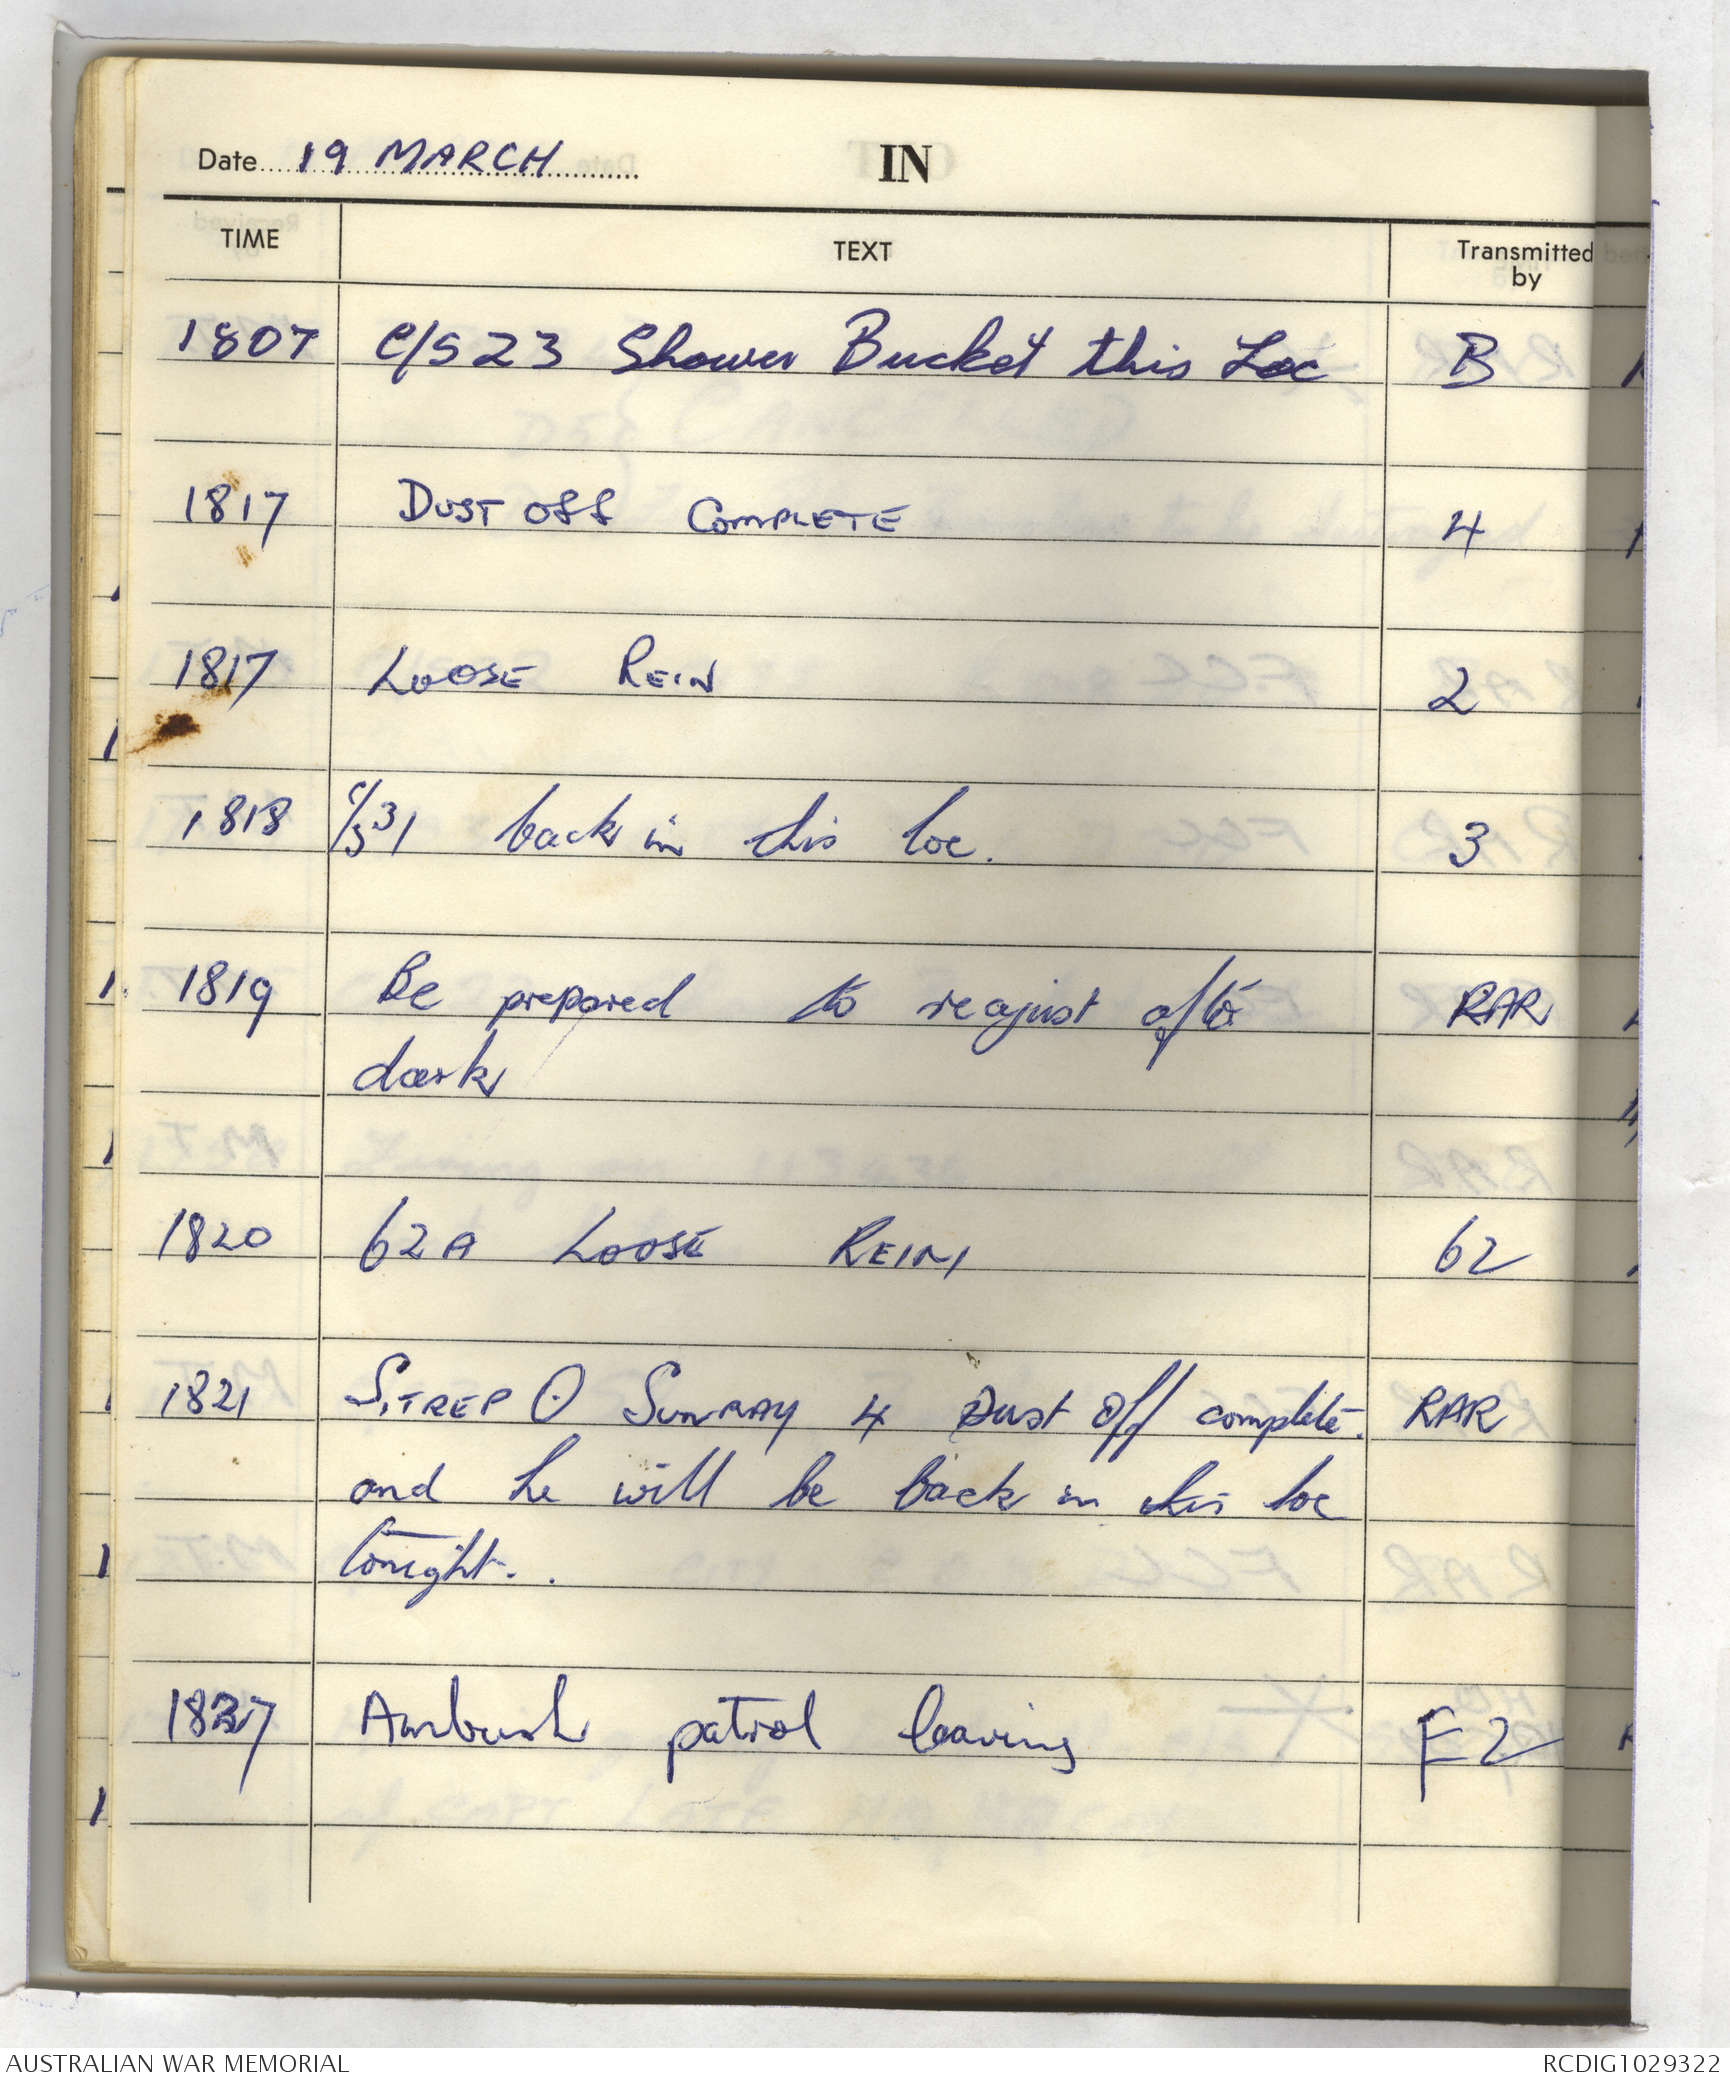 Date 19 MARCH IN
TIME TEXT Transmitted by
1807 C/S 23 Shower Bucket this Loc B
1817 DUST OFF COMPLETE 4
1817 LOOSE REIN 2
1818 C/S 31 back in this loc. 3
1819 Be prepared to reajust after RAR
dark
1820 62A LOOSE REIN 62
1821 SITREP O SUNRAY 4 Dust Off complete. RAR
and he will be back in this loc
tonight..
1827 Ambush patrol leaving F2
AUSTRALIAN WAR MEMORIAL RCDIG1029322